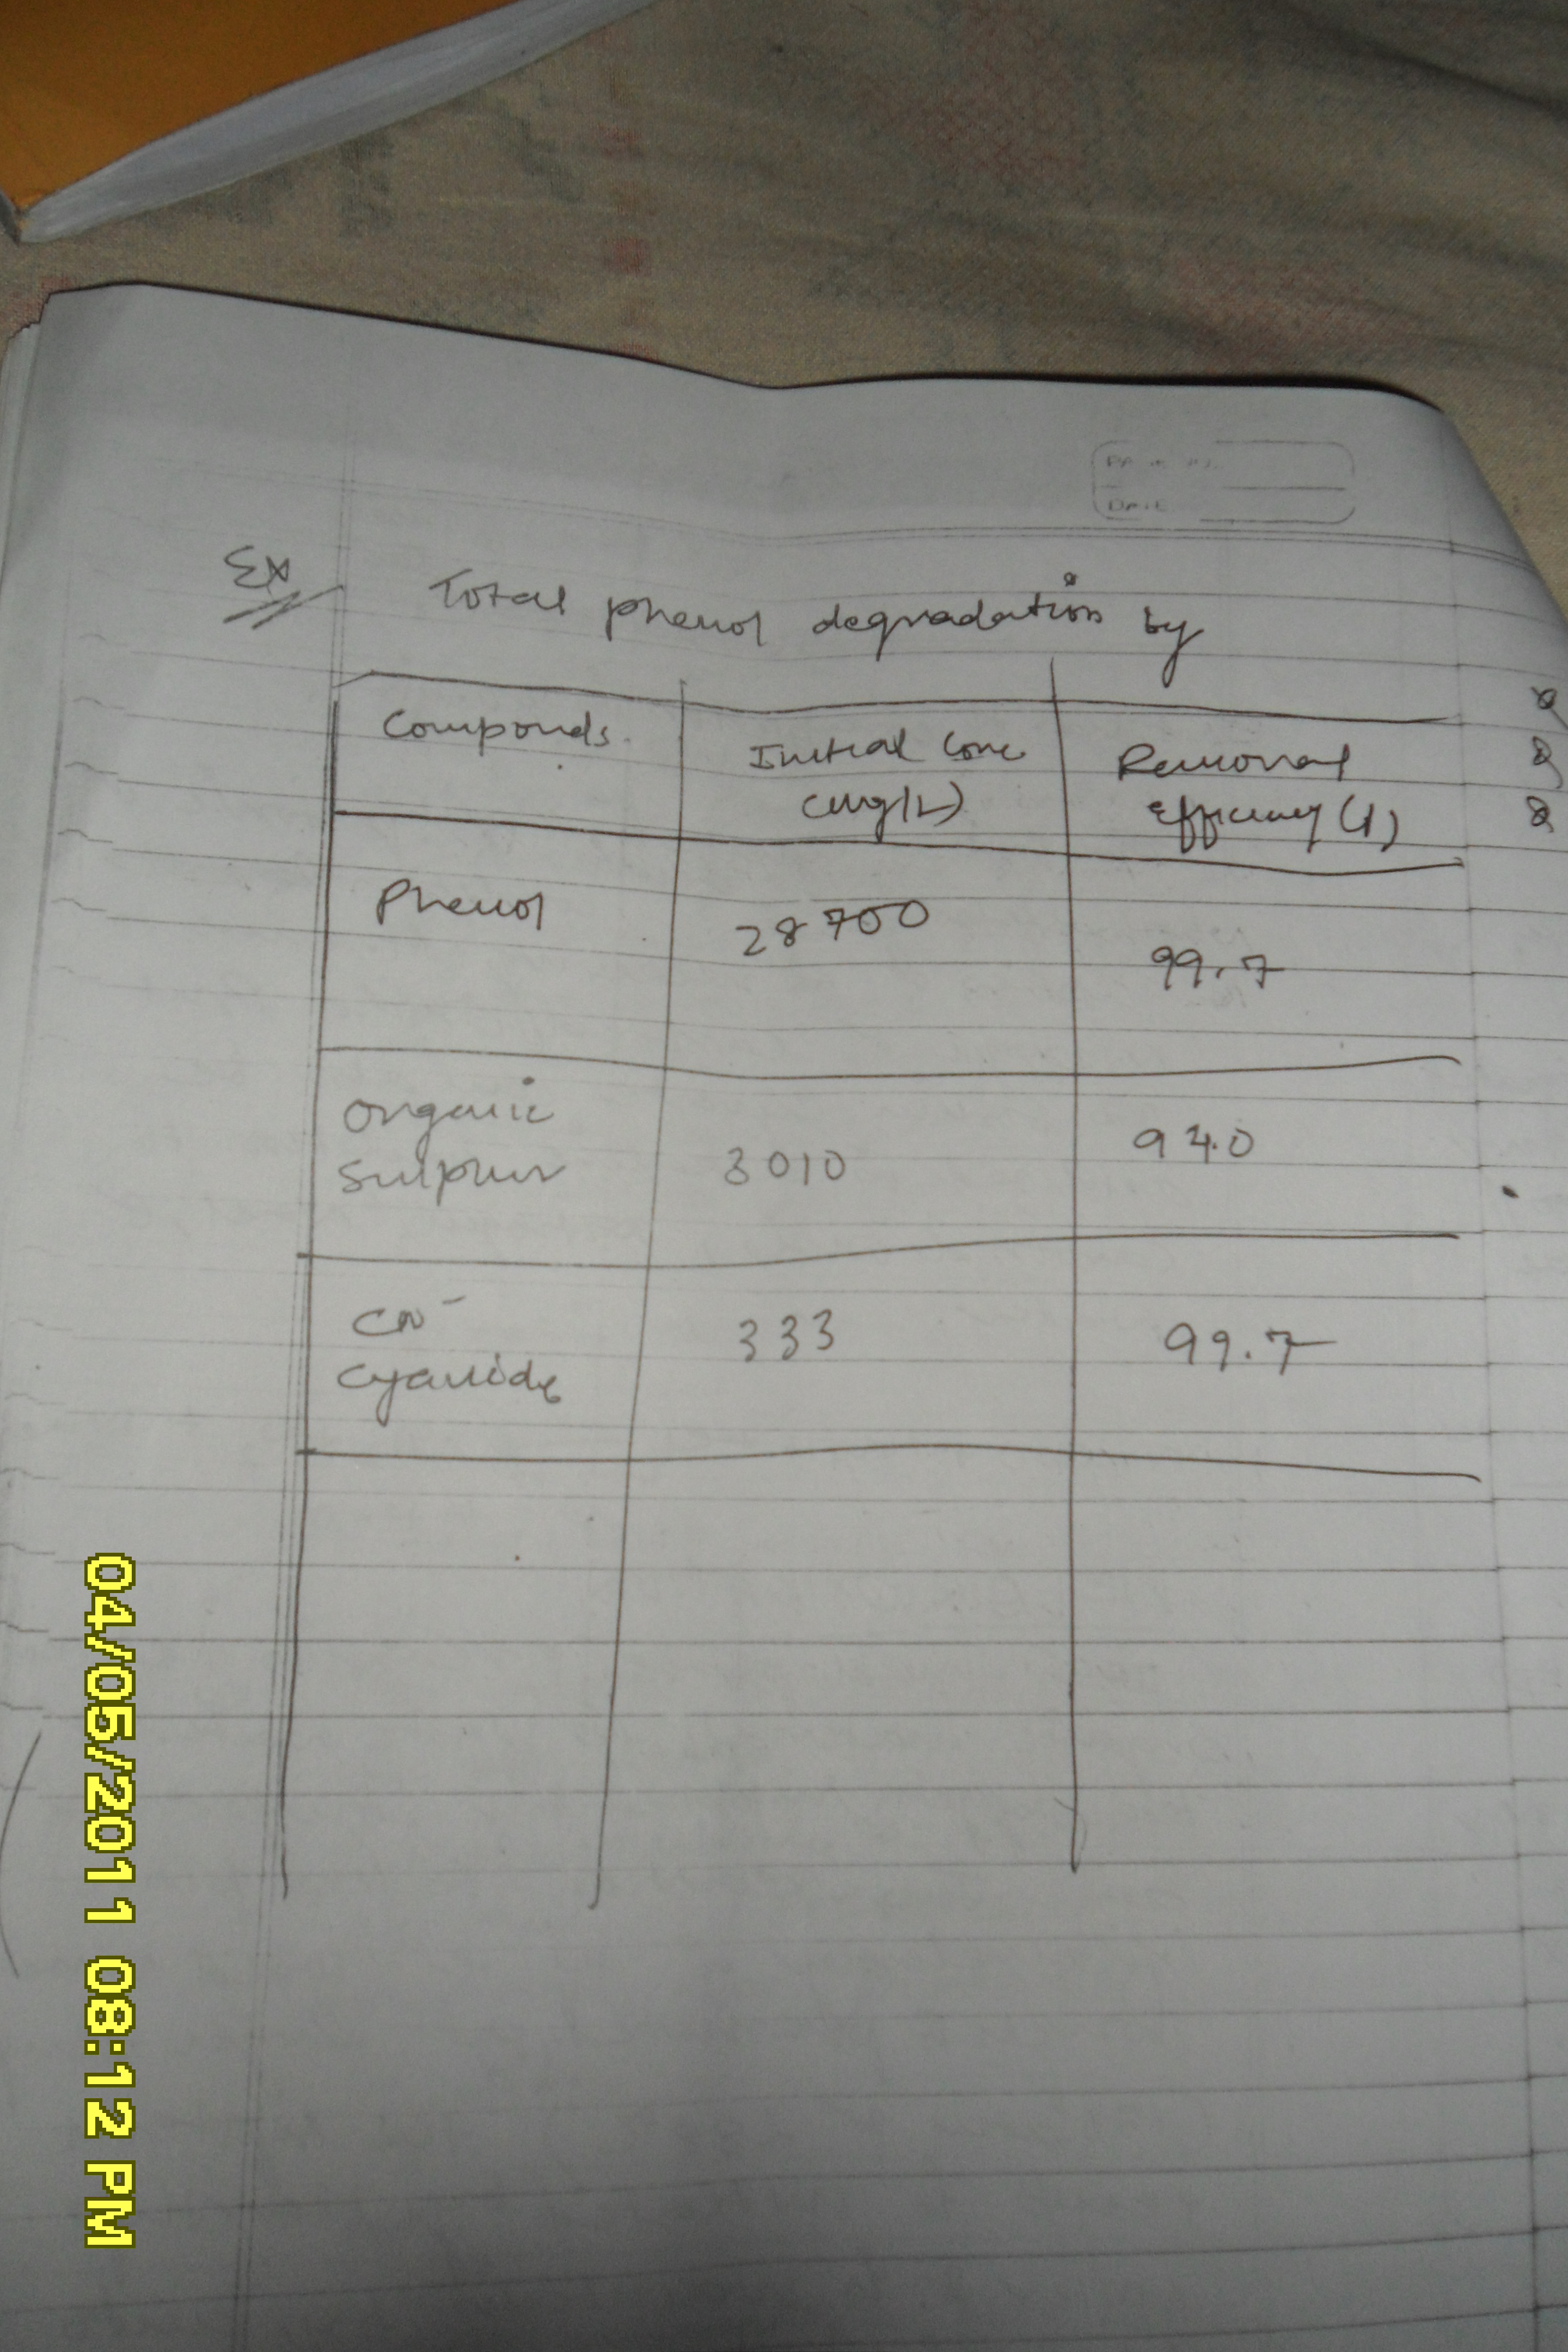 PAGE NO.
DATE
Ex
Total phenol degradation by
Componds.
Initial Conc
(mg/L)
Removal
Efficiency (1)
Phenol
28700
99.7
Organic
Sulphur
3010
94.0
CN-
Cyanide
333
99.7
04/05/2011 08:12 PM